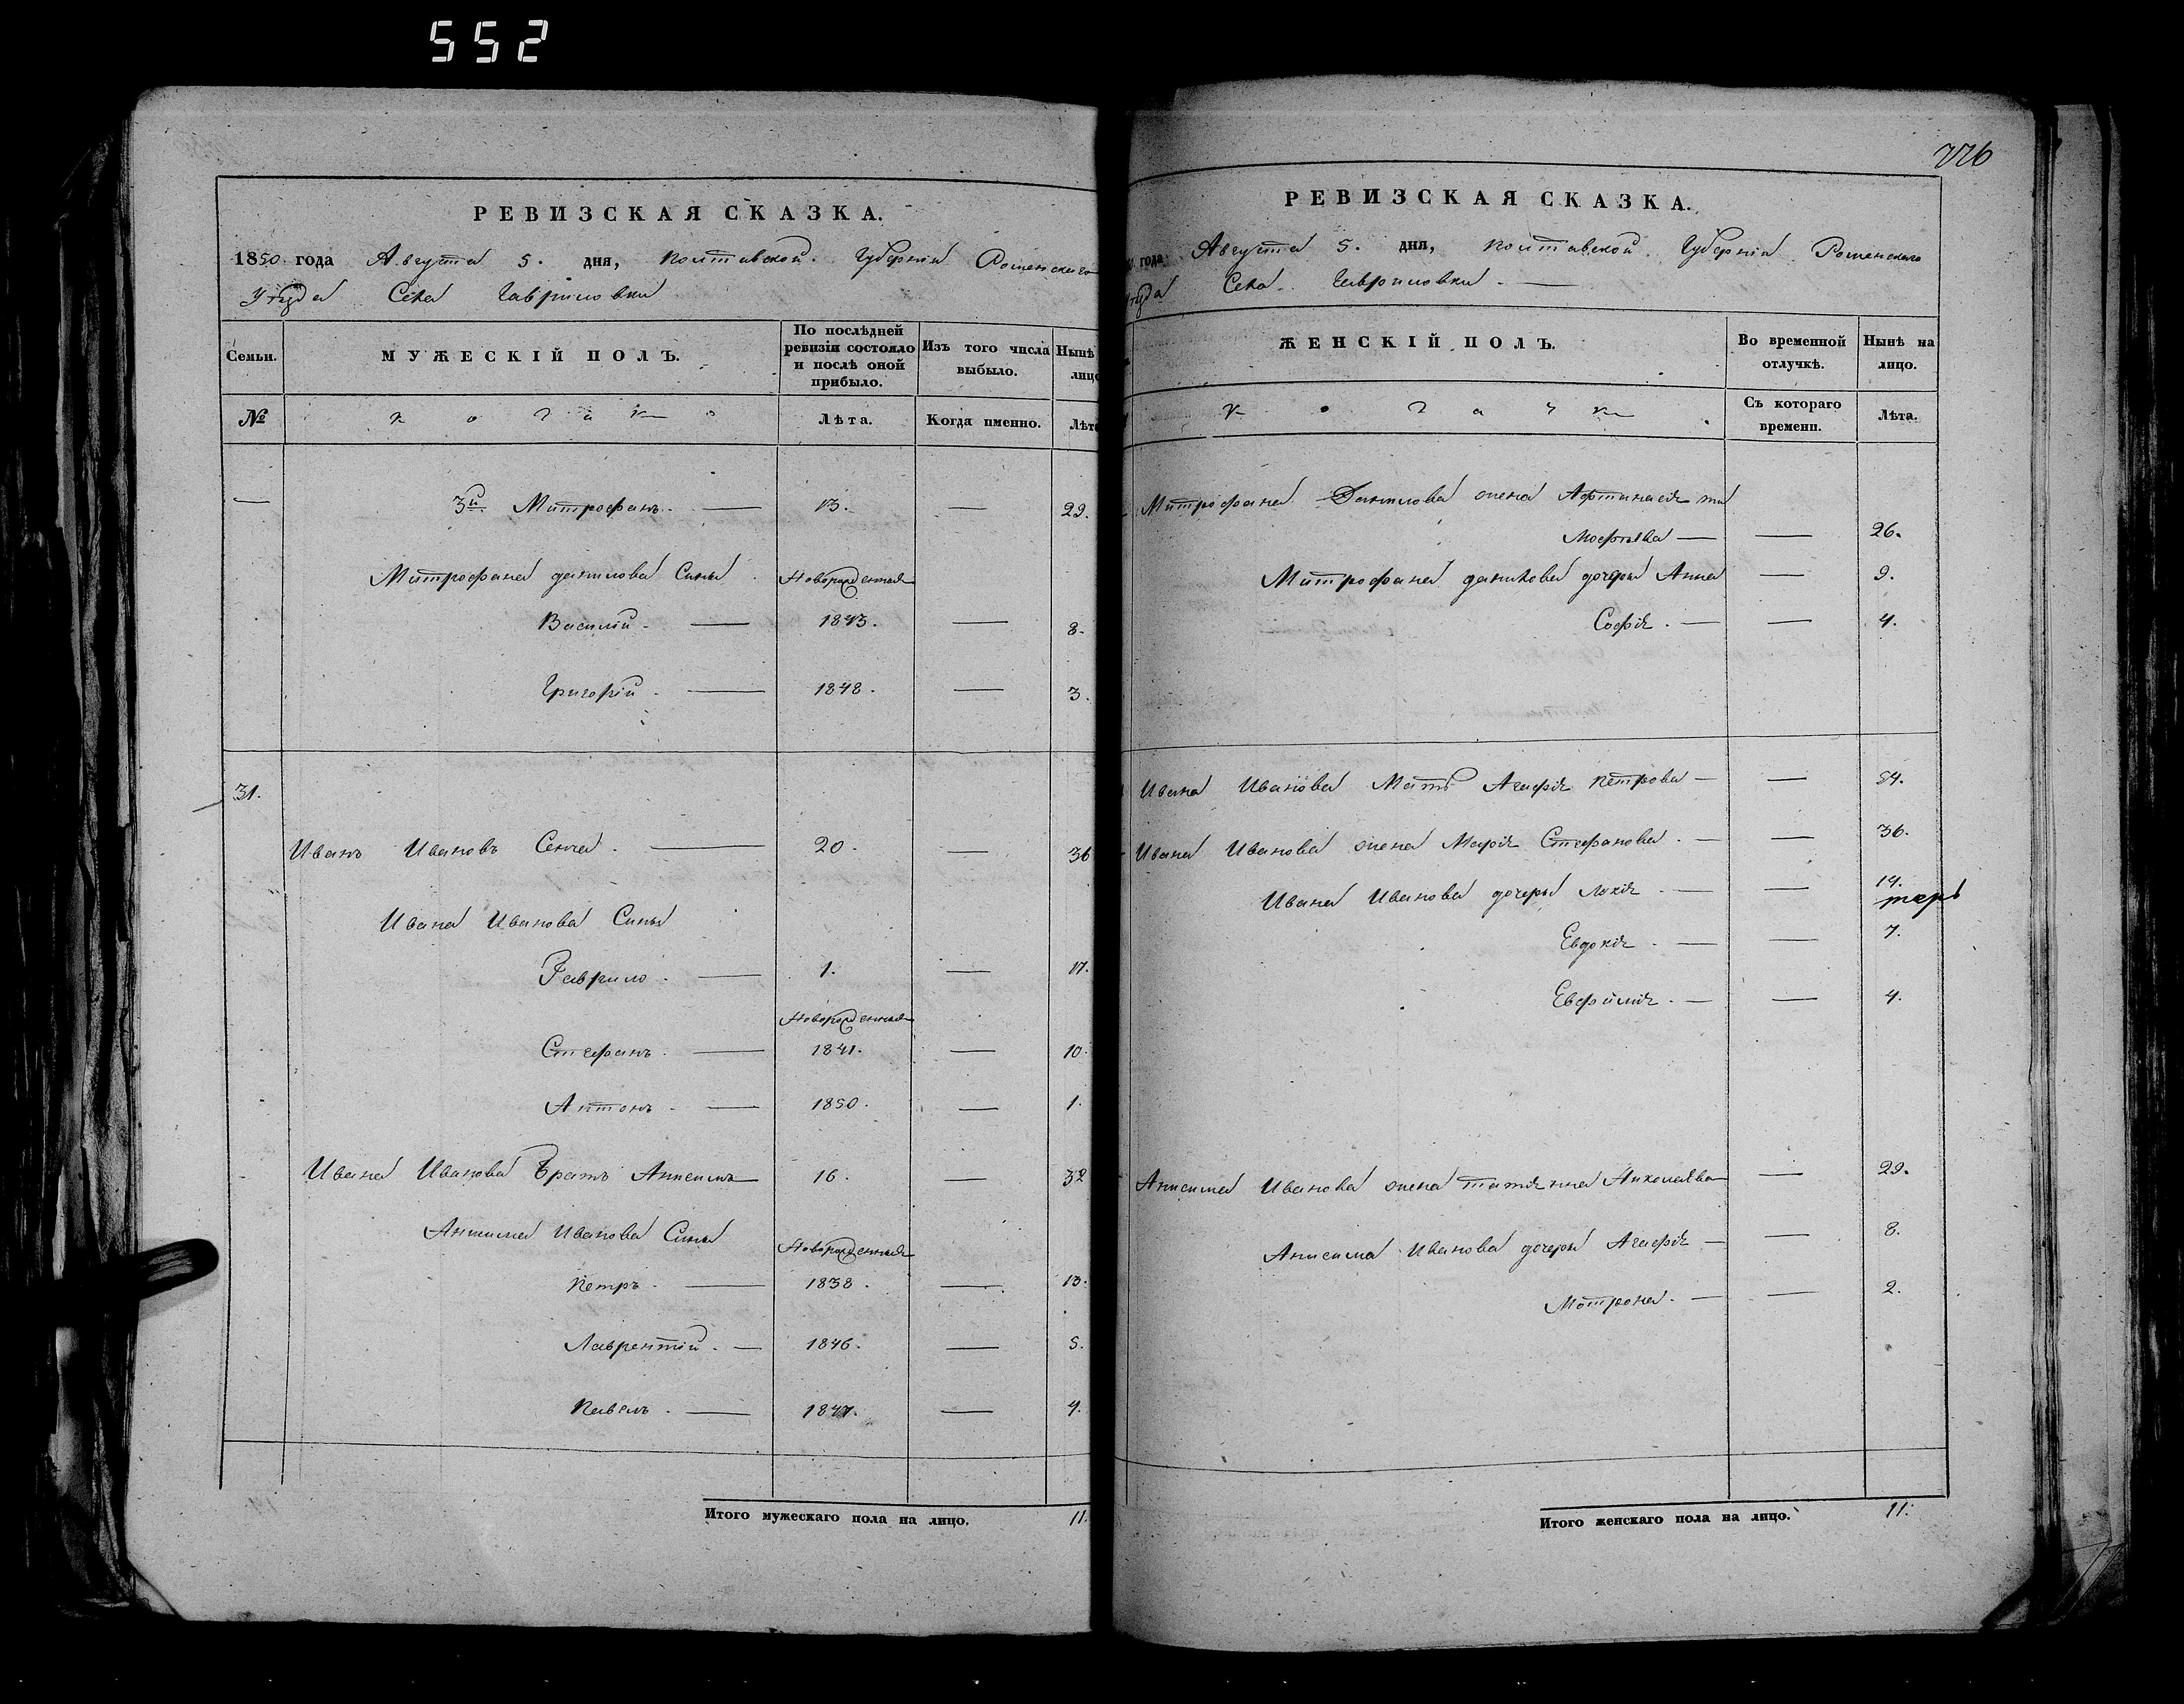 552
РЕВИЗСКАЯ СКАЗКА.
1850 года Августа 5. дня, Полтавской Губерніи Роменскаго
Уѣзда Села Гавриловки
Семьи.
МУЖЕСКІЙ ПОЛЪ.
По послѣдней ревизіи состояло и послѣ оной прибыло.
Изъ того числа выбыло.
Нынѣ
лицо
№
Лѣта.
Когда именно.
Лѣта
3й Митрофанъ. — 13. — 29.
Митрофана Данилова Сыны Новорожденныя
Василій — 1843. — 8.
Григорій — 1848. — 3.
31.
Иванъ Ивановъ Сенча. — 20. — 36
Ивана Иванова Сыны
Гаврило — 1. — 17.
Новорожденныя
Стефанъ — 1841. — 10.
Антонъ — 1850. — 1.
Ивана Иванова Братъ Анисимъ 16. — 32
Анисима Иванова Сыны Новорожденныя
Петръ — 1838. — 13.
Лаврентій — 1846. — 5.
Павелъ — 1847. — 4.
Итого мужескаго пола на лицо. 11.
776
РЕВИЗСКАЯ СКАЗКА.
года Августа 5. дня, Полтавской Губерніи Роменскаго
Уѣзда Села Гавриловки —
ЖЕНСКІЙ ПОЛЪ.
Во временной отлучкѣ.
Нынѣ на лицо.
Съ котораго времени.
Лѣта.
Митрофана Данилова жена
— — 26.
Митрофана Данилова дочеры Анна — 9.
Софія — — 4.
Ивана Иванова Мать Агафія Петрова — — 54.
Ивана Иванова жена Марія Стефанова — — 36.
Ивана Иванова дочеры — — 14.
Евдокія — — 7.
Евфимія — — 4.
Анисима Иванова жена Татіяна Николаѣва — 29.
Анисима Иванова дочеры Агафія — — 8.
Мотрона — — 2.
Итого женскаго пола на лицо. 11.